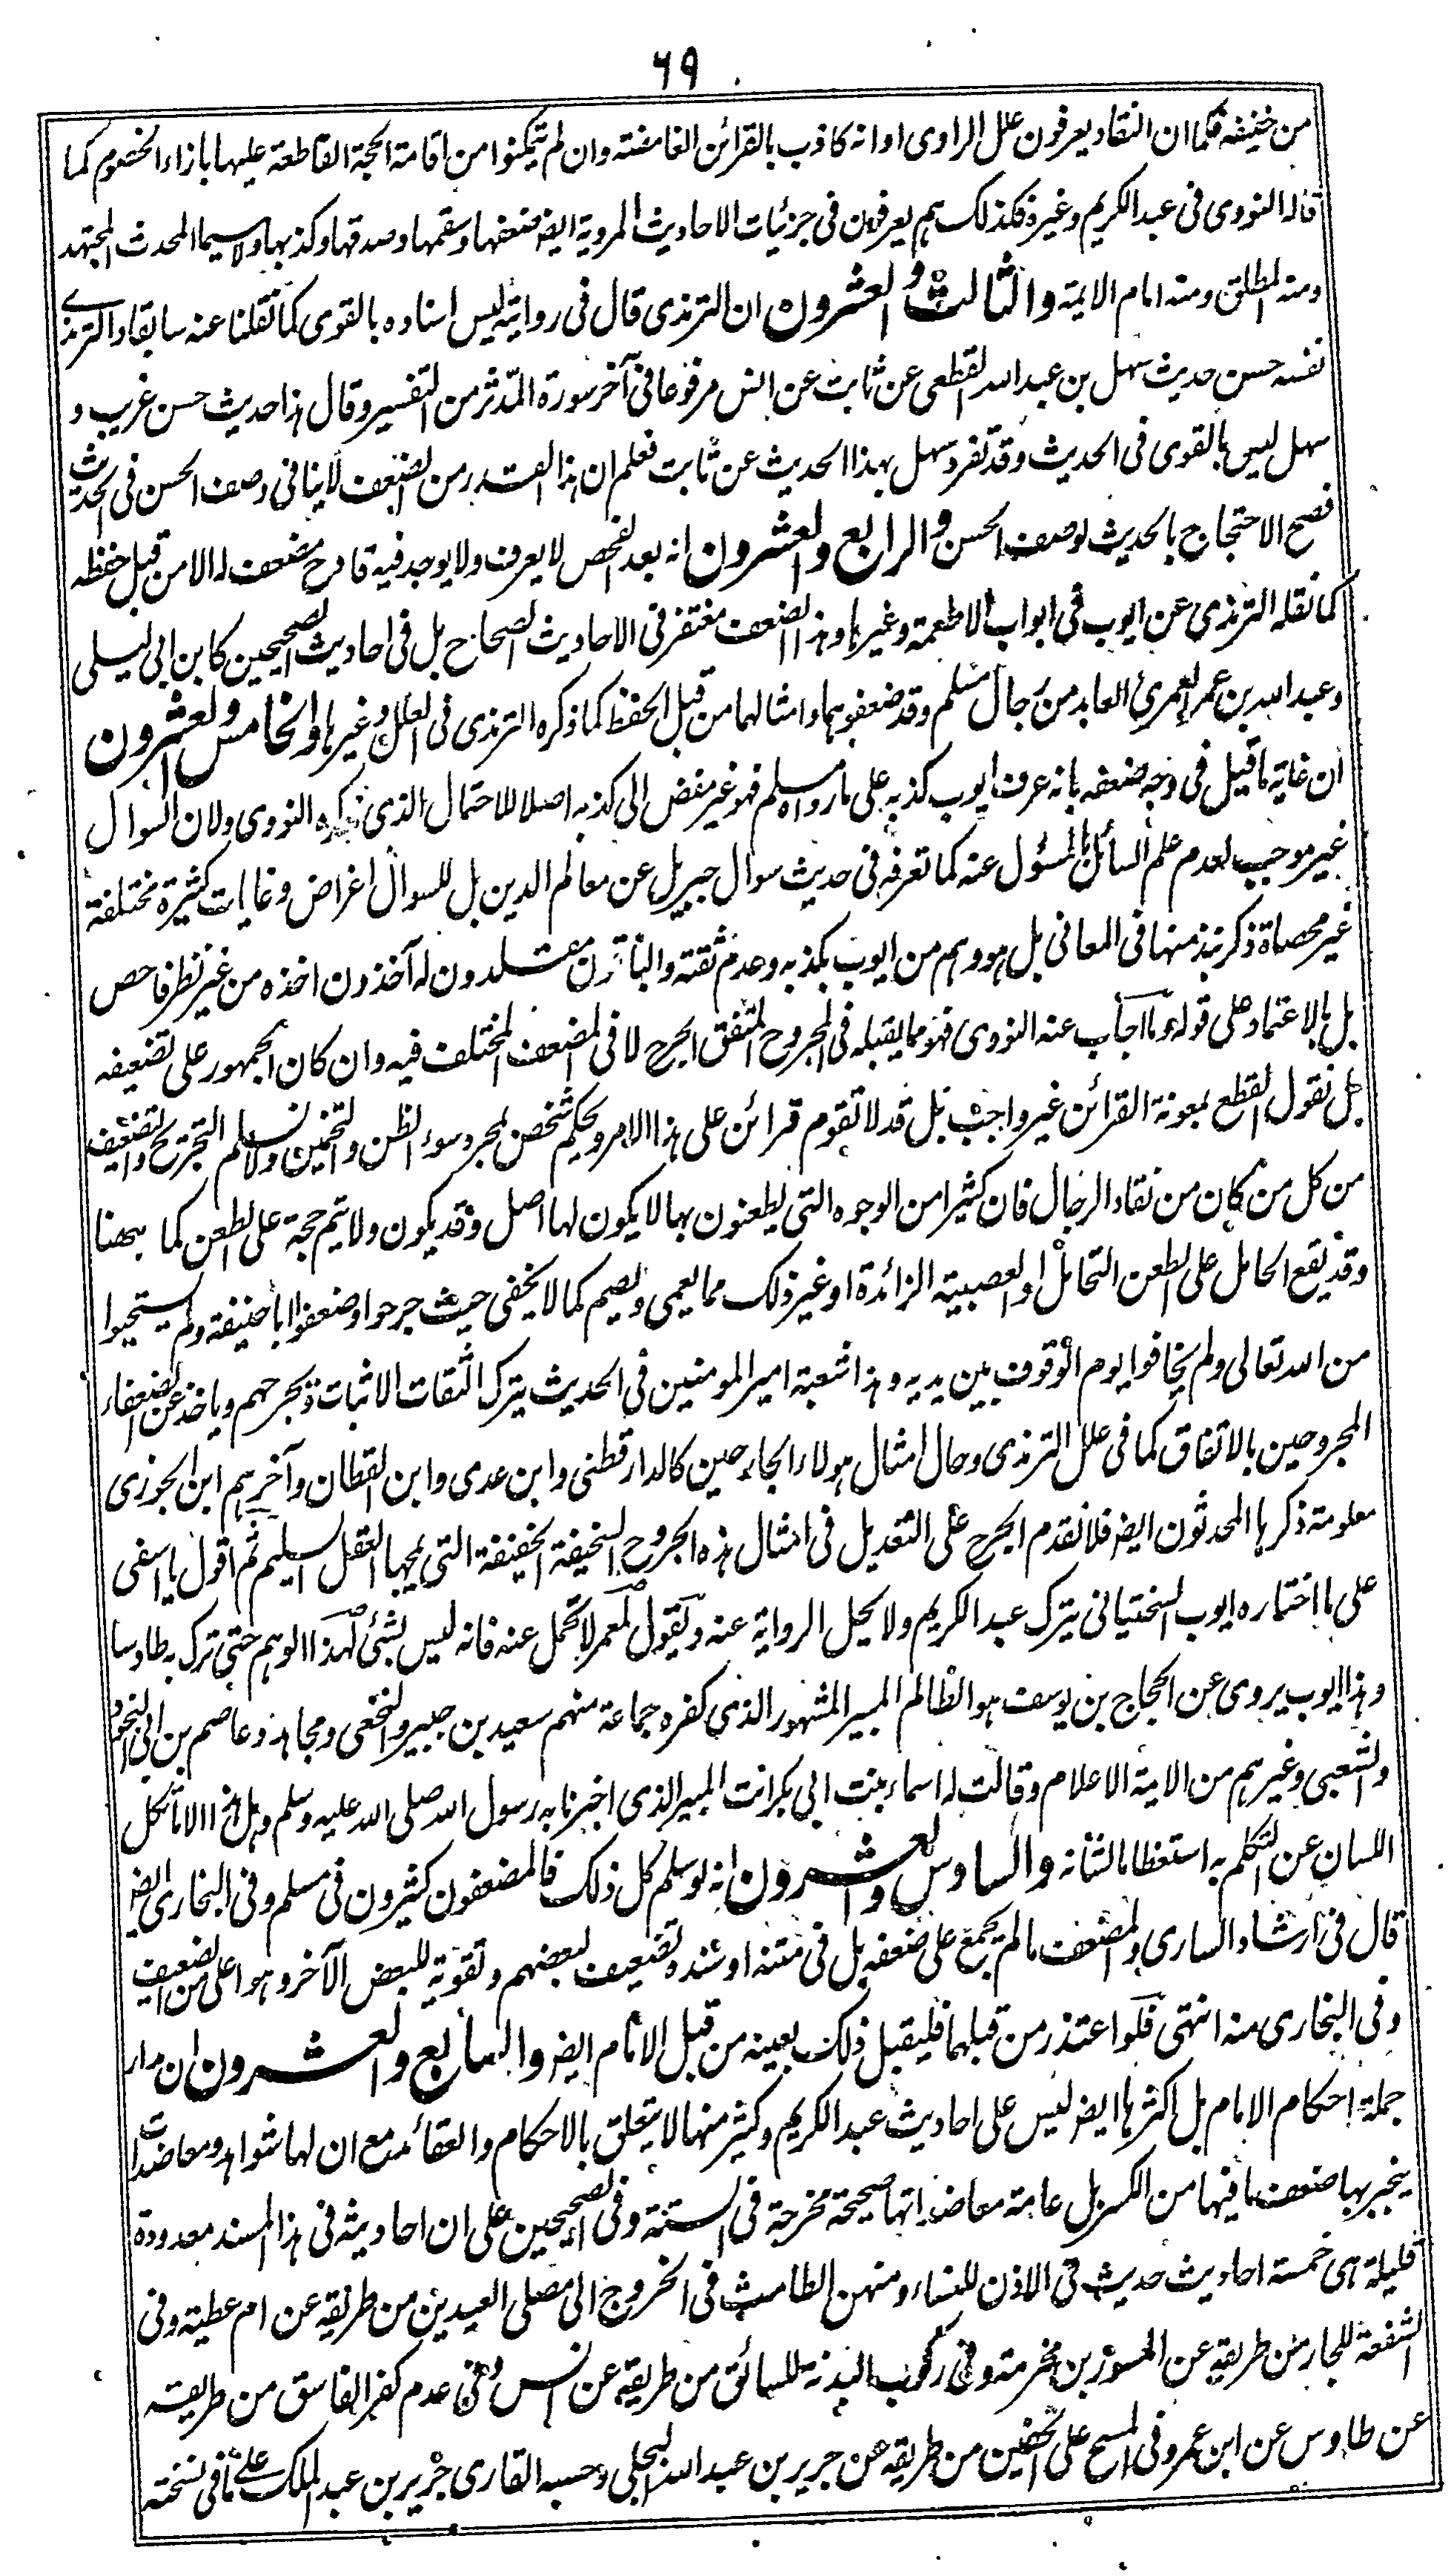 ٦٩
من حنيفه فكما ان النقاد يعرفون علل الراوى او انه كاذب بالقرائن الغامضة وان لم يتمكنوا من اقامة الحجة القاطعة عليها بازاء الخصوم كما
قاله النووى فى عبد الكريم وغيره فكذلك هم يعرفون فى جزئيات الاحاديث المروية ايضا ضعفها وسقمها وصدقها وكذبها ولا سيما المحدث المجتهد
ومنه المطلق ومنه امام الايمة والثالث والعشرون ان الترمذى قال فى رواية ليس اسناده بالقوى كما نقلنا عنه سابقا والترمذے
نفسه حسن حديث سهل بن عبد الله القطعى عن ثابت عن انس مرفوعا فى آخر سورة المدثر من التفسير وقال هذا حديث حسن غريب و
سهل ليس بالقوى فى الحديث وقد تفرد سهل بهذا الحديث عن ثابت فعلم ان هذا القدر من الضعف لا ينافى وصف الحسن فى الحديث
فصح الاحتجاج بالحديث لوصف الحسن والرابع والعشرون انه بعد الفحص لا يعرف ولا يوجد فيه قادح مضعف له الا من قبل حفظه
كما نقله الترمذى عن ايوب فى ابواب الاطعمة وغيرها وهذا الضعف مغتفر فى الاحاديث الصحاح بل فى احاديث الصحيحين كابن ابى ليلى
وعبد الله بن عمر العمرى العابد من رجال مسلم وقد ضعفوهما وامثالهما من قبل الحفظ كما ذكره الترمذى فى العلل وغيرها والخامس والعشرون
ان غاية ما قيل فى وجه ضعفه بانه عرف ايوب كذبه على ما رواه مسلم فهو غير مفض الى كذبه اصلا للاحتمال الذى ذكره النووى ولان السوال
غير موجب لعدم علم السائل بالمسؤل عنه كما تعرفه فى حديث سوال جبريل عن معالم الدين بل للسوال اغراض وغايات كثيرة مختلفة
غير محصاة ذكر نبذ منها فى المعانى بل هو وهم من ايوب بكذبه وعدم ثقته والباقون مقلدون له آخذون اخذه من غير نظر فاحص
بل بالاعتماد على قوله وما اجاب عنه النووى فهو مما يقبله فى المجروح المتفق الجرح لا فى المضعف المختلف فيه وان كان الجمهور على تضعيفه
بل نقول القطع بمعونة القرائن غير واجب بل قد لا تقوم قرائن على هذا الامر ويحكم شخص لمجرد سوء الظن والتخمين ولا نسلم التجريح والتضعيف
من كل من كان من نقاد الرجال فان كثيرا من الوجوه التى يطعنون بها لا يكون لها اصل وقد يكون ولا يتم حجة على الطعن كما ههنا
وقد يقع الحامل على الطعن التحامل او العصبية الزائدة او غير ذلك مما يعمى ويصم كما لا يخفى حيث جرحوا وضعفوا ابا حنيفة ولم يستحيوا
من الله تعالى ولم يخافوا يوم الوقوف بين يديه وهذا شعبة امير المومنين فى الحديث يترك الثقات الاثبات ويجرحهم وياخذ عن الضعفاء
المجروحين بالاتفاق كما فى علل الترمذى وحال امثال هولاء الجارحين كالدارقطنى وابن عدى وابن القطان وآخرهم ابن الجوزى
معلومة ذكرها المحدثون ايضا فلا نقدم الجرح على التعديل فى امثال هذه الجروح السخيفة الخفيفة التى يمجها العقل السليم ثم اقول يا اسفى
على ما اختاره ايوب السختيانى يترك عبد الكريم ولا يحل الرواية عنه ويقول لمعمر لا تحمل عنه فانه ليس بشئ لهذا الوهم حتى ترك به طاوسا
وهذا ايوب يروى عن الحجاج بن يوسف هو الظالم المبير المشهور الذى كفره جماعة منهم سعيد بن جبير والنخعى ومجاهد وعاصم بن ابى النجود
والشعبى وغيرهم من الايمة الاعلام وقالت له اسماء بنت ابى بكر انت المبير الذى اخبرنا به رسول الله صلى الله عليه وسلم وهل هذا الا تأكل
اللسان عن التكلم به استعظاما لشانه والسادس والعشرون انه لو سلم كل ذلك فالمضعفون كثيرون فى مسلم وفى البخارى ايضا
قال فى ارشاد السارى والمضعف ما لم يجمع على ضعفه بل فى متنه او سنده تضعيف لبعضهم وتقوية للبعض الآخر وهو اعلى من الضعيف
وفى البخارى منه انتهى فلو اعتذر من قبلهما فليقبل ذلك بعينه من قبل الامام ايضا والسابع والعشرون ان مدار
جملة احكام الامام بل اكثرها ايضا ليس على احاديث عبد الكريم وكثير منها لا يتعلق بالاحكام والعقائد مع ان لها شواهد ومعاضدات
ينجبر بها ضعف ما فيها من الكسر بل عامة معاضداتها صحيحة مخرجة فى الستة وفى الصحيحين على ان احاديثه فى هذا المسند معدودة
قليلة هى خمسة احاديث حديث فى الاذن للنساء ومنهن الطامث فى الخروج الى مصلى العيدين من طريقه عن ام عطية وفى
الشفعة للجار من طريقه عن المسور بن مخرمة وفى ركوب البدنة للسائق من طريقه عن انس وفى عدم كفر الفاسق من طريقه
عن طاوس عن ابن عمر وفى المسح على الخفين من طريقه عن جرير بن عبد الله البجلى وحسبه القارى جرير بن عبد الملك على ما فى نسخته